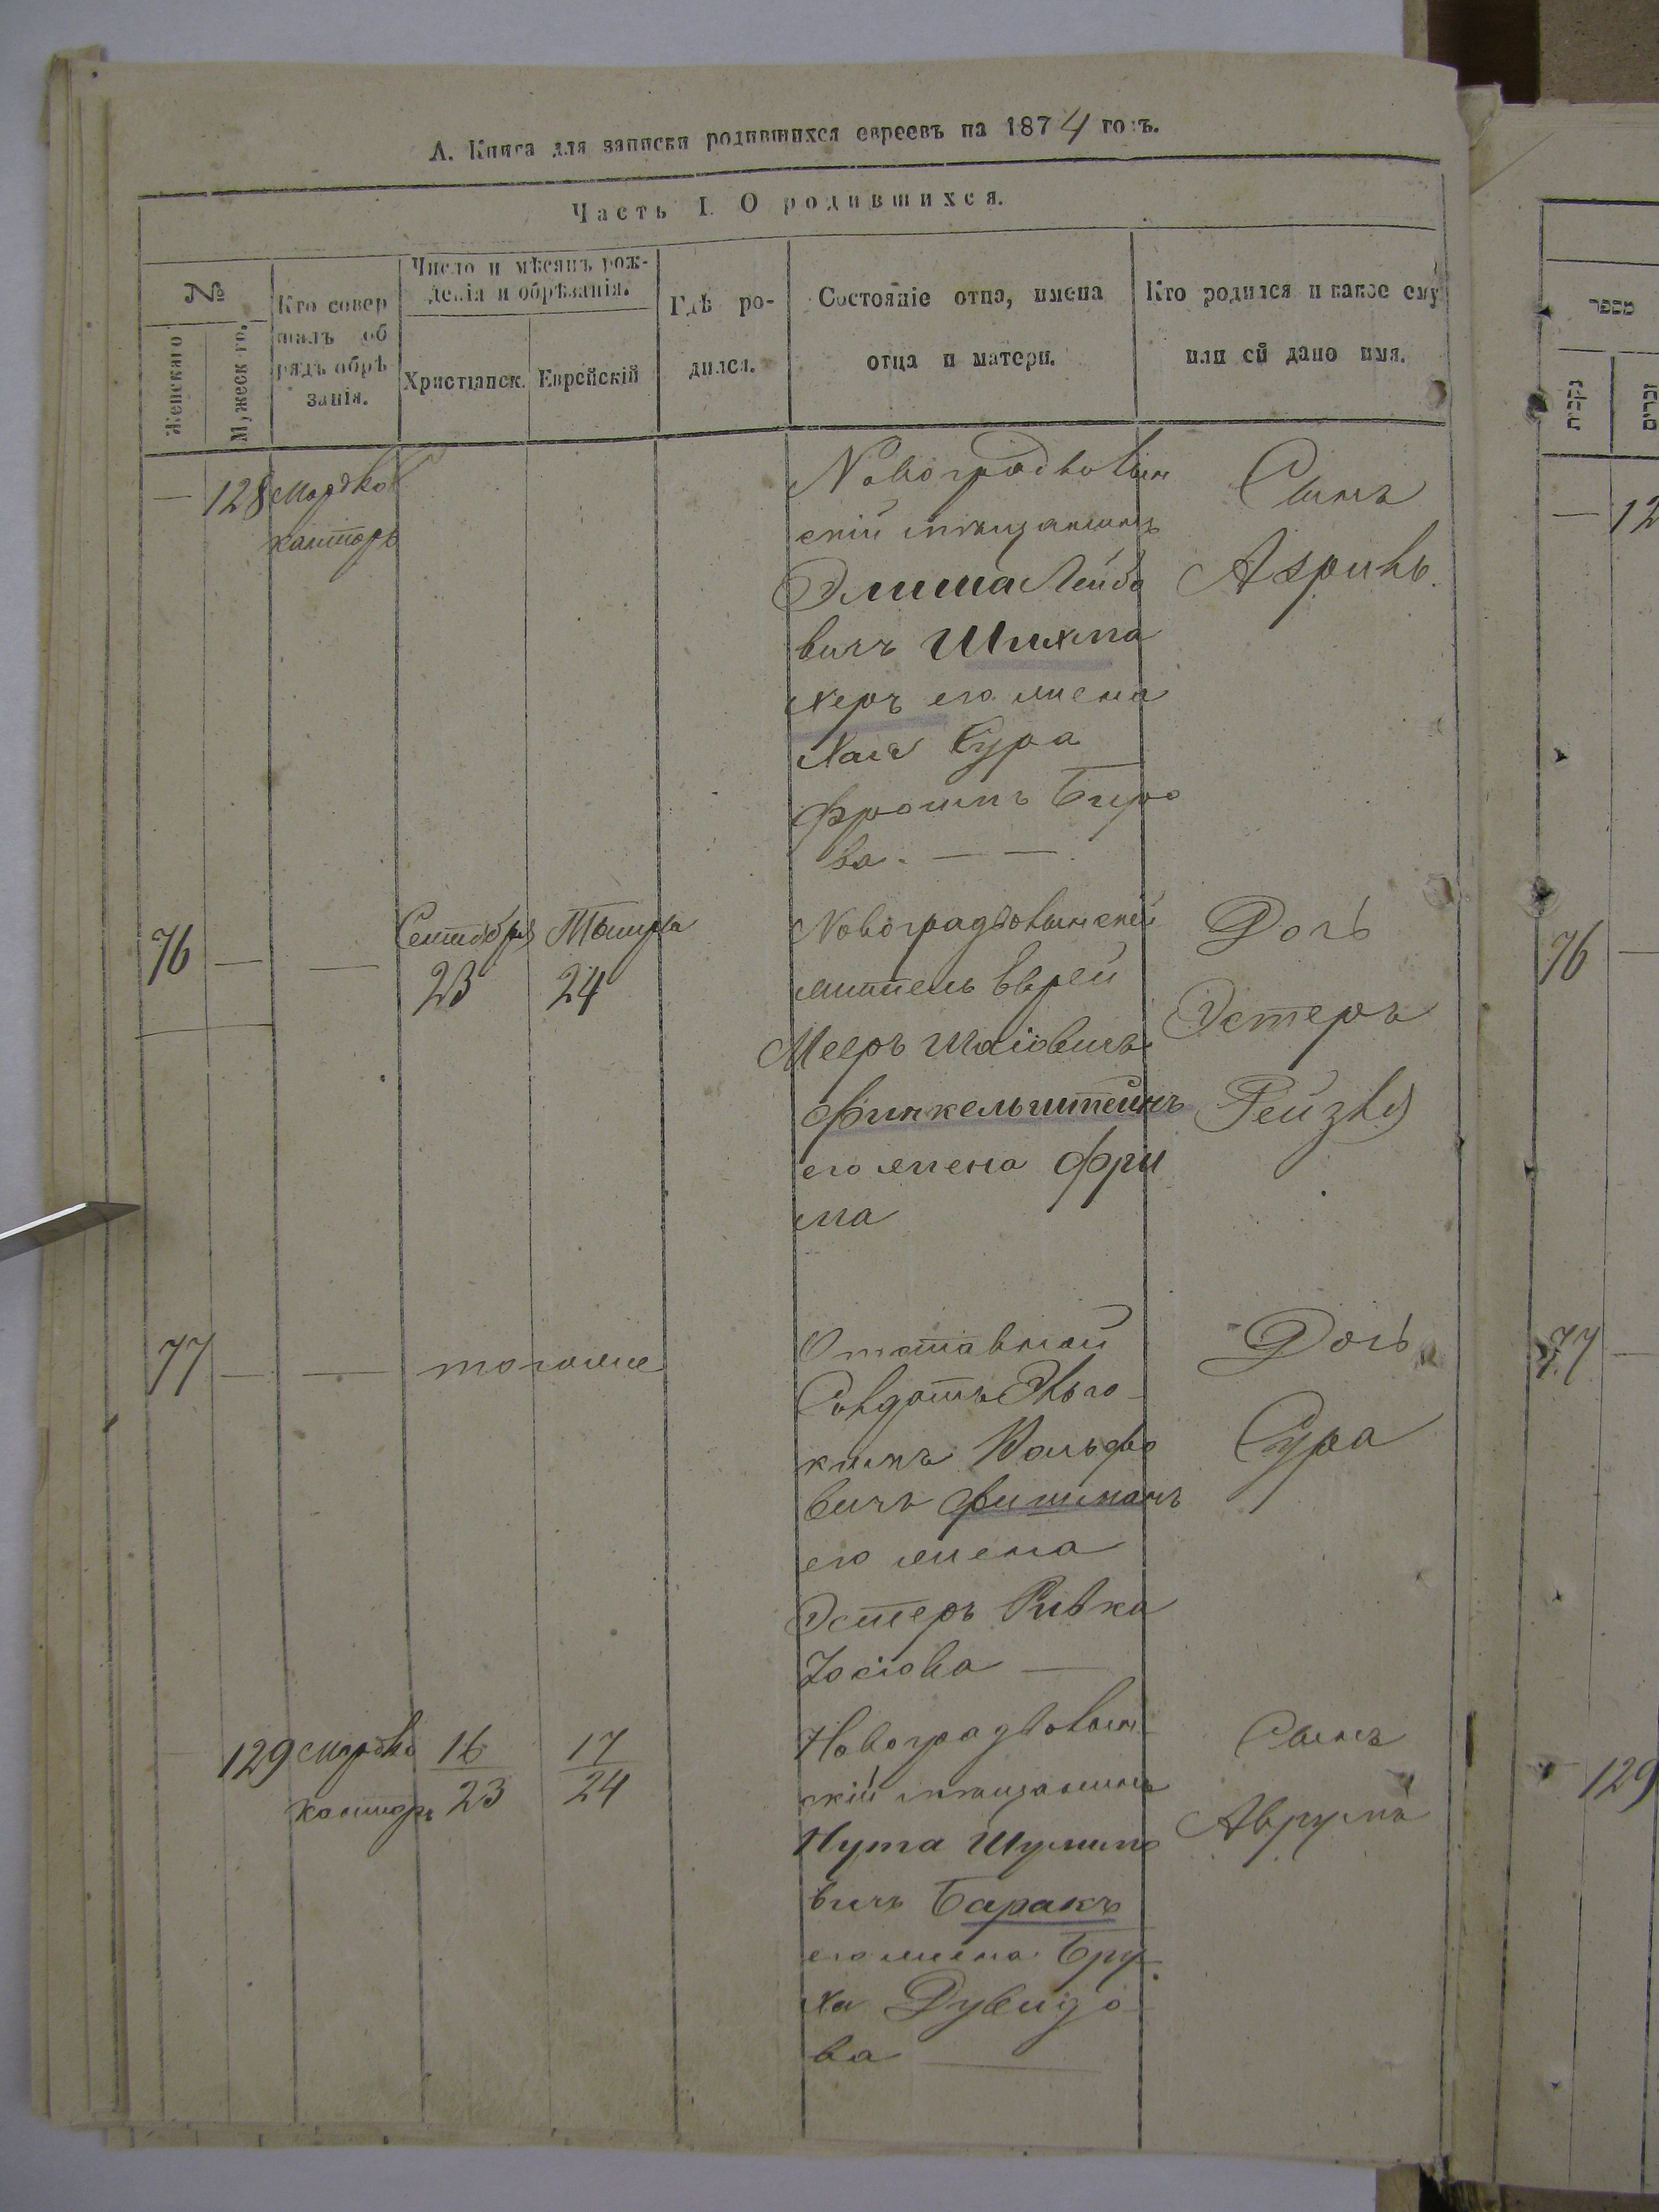 А. Книга для записки родившихся евреевъ на 1874 годъ.
Часть I. О родившихся.
№
Женскаго
Мужеского.
Кто совер
шалъ об
рядъ обрѣ
занія.
Число и мѣсяцъ рож-
денія и обрѣзанія.
Христіанск.
Еврейскій
Гдѣ ро-
дился.
Состояніе отца, имена
отца и матери.
Кто родился и какое ему
или ей дано имя.
— 128 Мордко
Кантаръ
Новоградволын
скій мѣщанинъ
Элиша Лейбо
вичъ Шихма
херъ его жена
Хая Сура
Фроимъ Беро
ва. — —
Сынъ
Ааронъ.
76 — —
Сентября
23
Тишра
24
Новоградволынскій
житель Еврей
Мееръ Шаіовичъ
Финкельштейнъ
его жена Фри
ма
Дочь
Эстеръ
Рейзя
77 — — тогоже
Отставной
Солдатъ
кимъ Вольфо
вичъ Фишманъ
его жена
Эстеръ Ривка
Іосіова —
Дочь
Сура
129 Мордко
Кантаръ
16
23
17
24
Новоградволын
скій мѣщанинъ
Нута Шулимо
вичъ Баракъ
его жена Бру
ха Дувидо
ва
Сынъ
Аврумъ
מספר
נקבות
זכרים
— 12
76 —
77 —
129